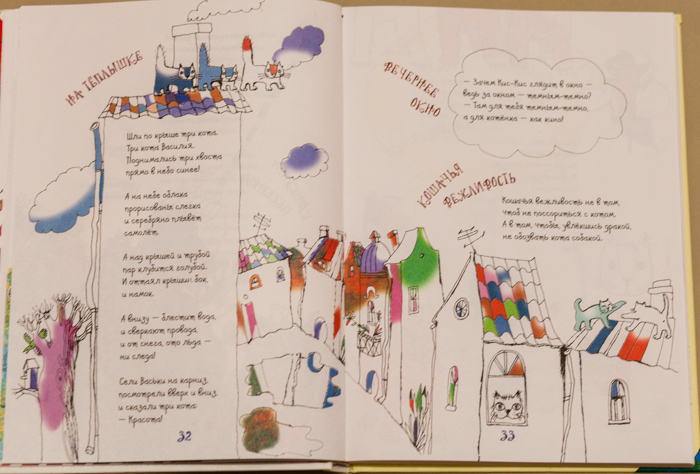 НА ТЁПЛЫШКЕ
Шли по крыше три кота.
Три кота Василия.
Поднимались три хвоста
прямо в небо синее!
А на небе облака
прорисованы слегка
и серебряно плывёт
самолёт.
А над крышей и трубой
пар клубится голубой.
И оттаял крышин бок,
и намок.
А внизу — блестит вода,
и сверкают провода,
и от снега, ото льда —
ни следа!
Сели Васьки на карниз,
посмотрели вверх и вниз,
и сказали три кота:
— Красота!
32
ВЕЧЕРНЕЕ
ОКНО
— Зачем Кис-Кис глядит в окно —
ведь за окном — темным-темно?
— Там для тебя темным-темно,
а для котёнка — как кино!
КОШАЧЬЯ
ВЕЖЛИВОСТЬ
Кошачья вежливость не в том,
чтоб не поссориться с котом.
А в том, чтобы, увлёкшись дракой,
не обозвать кота собакой.
33